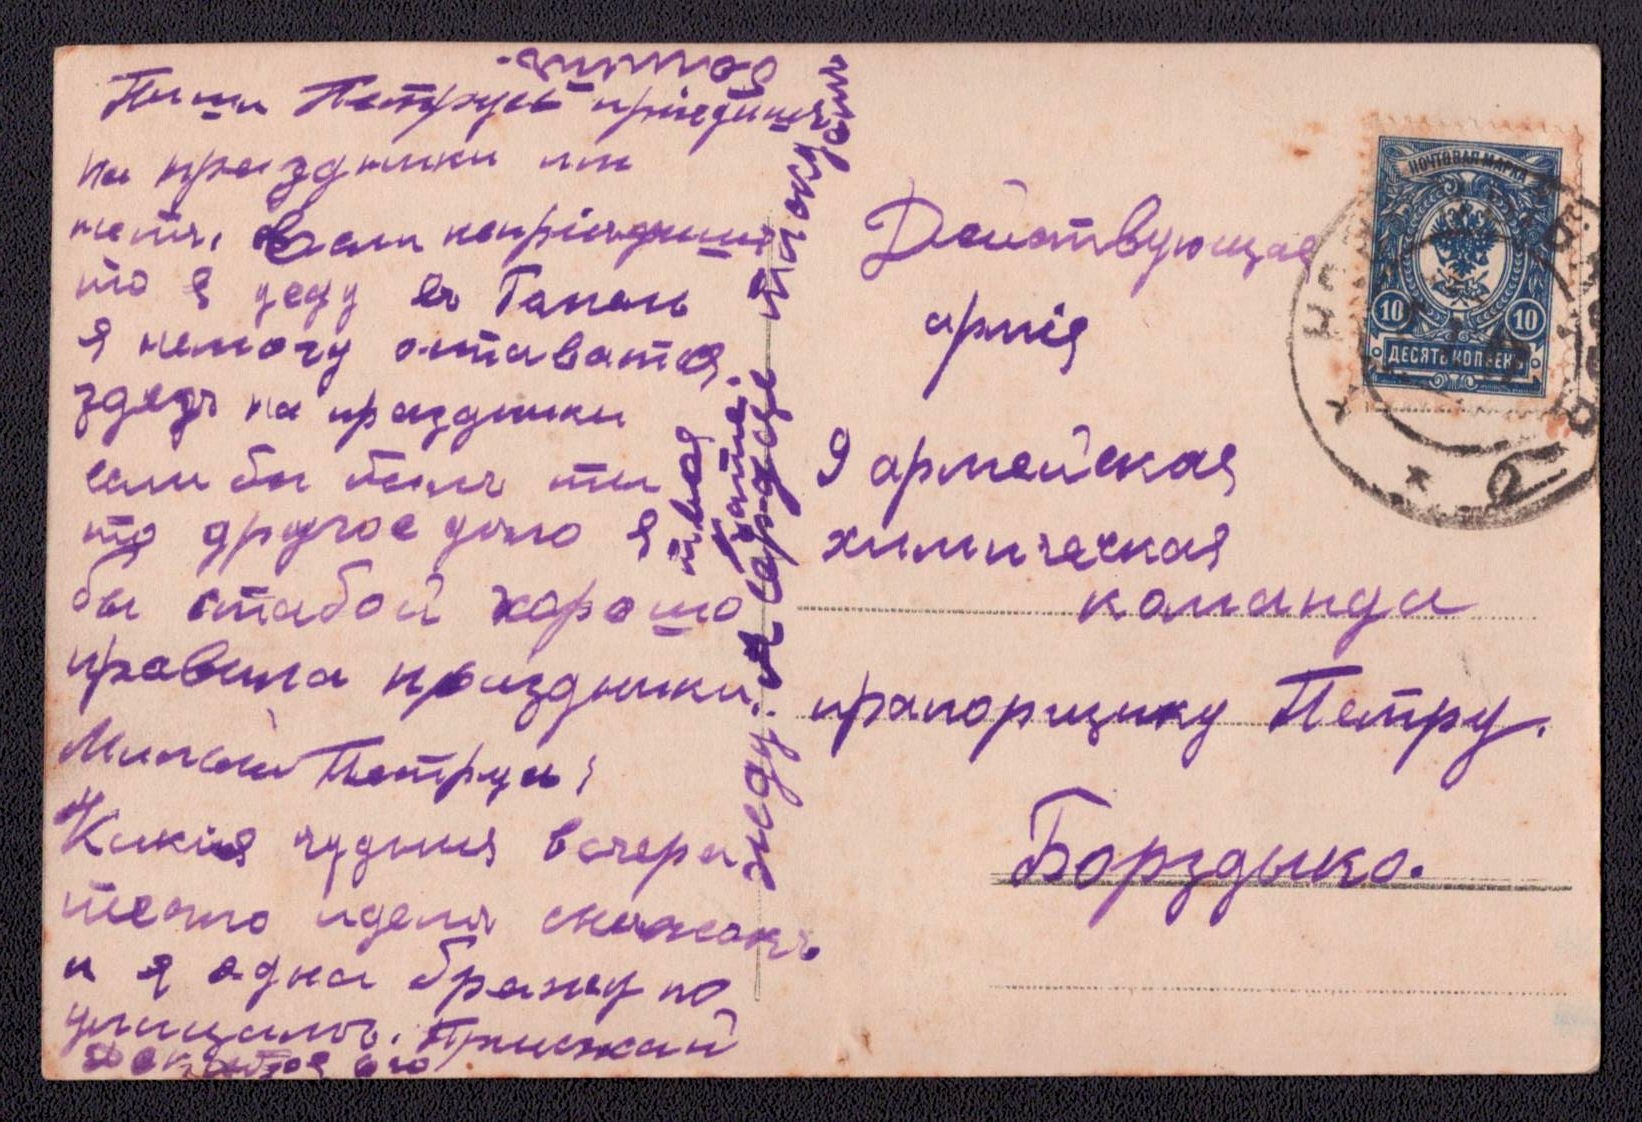 Пиши Петрусь приедишь
на праздники или
нетъ, если неприедишь
то я уеду въ Гапель
я немогу оставатся
здезь на праздники
если бы былъ ты
то другое дело я
бы стабой хорошо
правила праздники.
Милой Петрусь!
Какия чудныя вечера
тепло идетъ снежокъ
и я одна бражу по
улицамъ. Приежай
декабря 6го
твоя
Катя.
жду. А сердце
Действующая
армія
9 армейская
химическая
команда
прапорщику Петру.
Борздыко.
ПОЧТОВАЯ МАРКА
10 10
ДЕСЯТЬ КОПѢЕКЪ